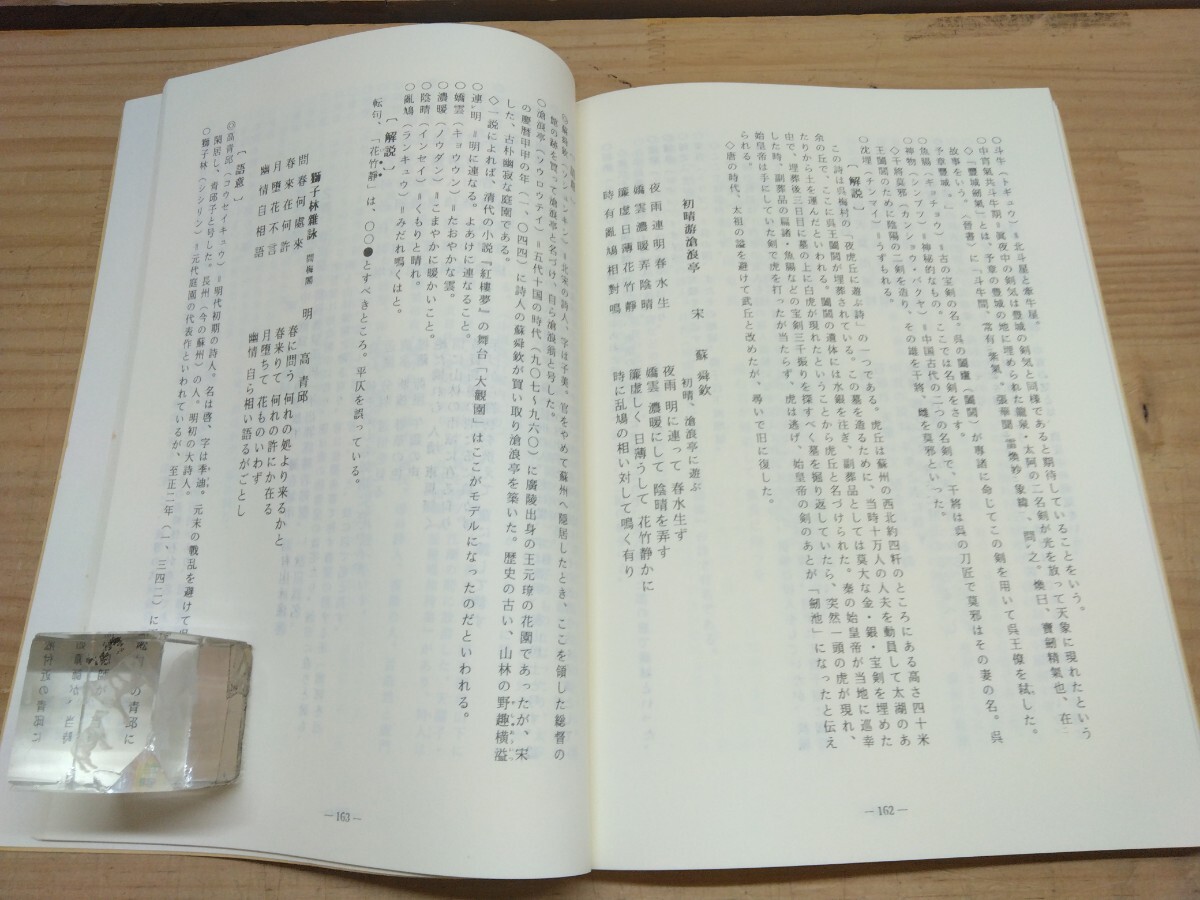 ○斗牛（トギュウ）＝北斗星と牽牛星。
○中宵氣共斗牛期＝眞夜中の剣気は豊城の剣気と同様であると期待していることをいう。
◇「豐城劍氣」とは、予章の豊城の地に埋められた龍泉・太阿の二名剣が光を放って天象に現れたという
故事をいう。《晉書》に「斗牛間、常有
予章豐城、
○魚腸（ギョチョウ）＝古の宝剣の名。呉の闔廬（闔閭）が専諸に命じてこの剣を用いて呉王僚を弑した。
○神物（シンブツ）＝神秘的なもの、ここでは名剣をさす。
◇干將莫邪（カンショウ・バクヤ）＝中国古代の二つの名剣で、干將は呉の刀匠で莫邪はその妻の名。呉
王闔閭のために陰陽の二剣を造り、その雄を干將、雌を莫邪といった。
○沈埋（チンマイ）＝うずもれる。
〔解説〕
この詩は呉梅村の「夜虎丘に遊ぶ詩」の一つである。虎丘は蘇州の西北約四粁のところにある高さ四十米
余の丘で、ここに呉王闔閭が埋葬されている。この墓を造るために、当時十万人の人夫を動員して太湖のあ
たりから土を運んだといわれる。闔閭の遺体には水銀を注ぎ、副葬品としては莫大な金・銀・宝剣を埋めた
が、埋葬後三日目に墓の上に白虎が現れたということから虎丘と名づけられた。秦の始皇帝が当地に巡幸
した時、副葬品の扁諸・魚腸などの宝剣三千振りを探すべく墓を掘り返していたら、突然一頭の虎が現れ、
始皇帝は手にしていた剣で虎を打ったが当たらず、虎は逃げ、始皇帝の剣のあとが「劍池」になったと伝え
られる。
◇唐の時代、太祖の諡を避けて武丘と改めたが、尋いで旧に復した。
初晴游滄浪亭　宋　蘇舜欽
初晴、滄浪亭に遊ぶ
夜雨連明春水生　夜雨 明に連って 春水生ず
嬌雲濃暖弄陰晴　嬌雲 濃暖にして 陰晴を弄す
簾虛日薄花竹靜　簾虚しく 日薄うして 花竹静かに
時有亂鳩相對鳴　時に乱鳩の相い対して鳴く有り
— 162 —
◎蘇舜欽（ソシュンキン）＝北宋の詩人、字は子美。官をやめて蘇州へ隠居したとき、ここを領した総督の
館の跡を買って滄浪亭と名づけ、自ら滄浪翁と号した。
○滄浪亭（ソウロウテイ）＝五代十国の時代（九〇七～九六〇）に廣陵出身の王元璙の花園であったが、宋
の慶暦甲申の年（一、〇四四）に詩人の蘇舜欽が買い取り滄浪亭を築いた。歴史の古い、山林の野趣横溢
した、古朴幽寂な庭園である。
◇一説によれば、清代の小説『紅樓夢』の舞台「大觀園」はここがモデルになったのだといわれる。
○連レ明＝明に連なる。よあけに連なること。
○嬌雲（キョウウン）＝たおやかな雲。
○濃暖（ノウダン）＝こまやかに暖かいこと。
○陰晴（インセイ）＝くもりと晴れ。
○亂鳩（ランキュウ）＝みだれ鳴くはと。
〔解説〕
転句、「花竹靜」は、〇〇●とすべきところ。平仄を誤っている。
獅子林雜詠 問梅閣　明　高青邱
問春何處來　春に問う 何れの処より来るかと
春來在何許　春来りて 何れの許にか在る
月堕花不言　月堕ちて 花ものいわず
幽情自相語　幽情 自ら相い語るがごとし
〔語意〕
◎高青邱（コウセイキュウ）＝明代初期の詩人。名は啓、字は季迪。元末の戰乱を避けて
閑居し、青邱子と号した。長州（今の蘇州）の人。明初の大詩人。
○獅子林（シシリン）＝元代庭園の代表作といわれているが、至正二年（一、三四二）に
— 163 —